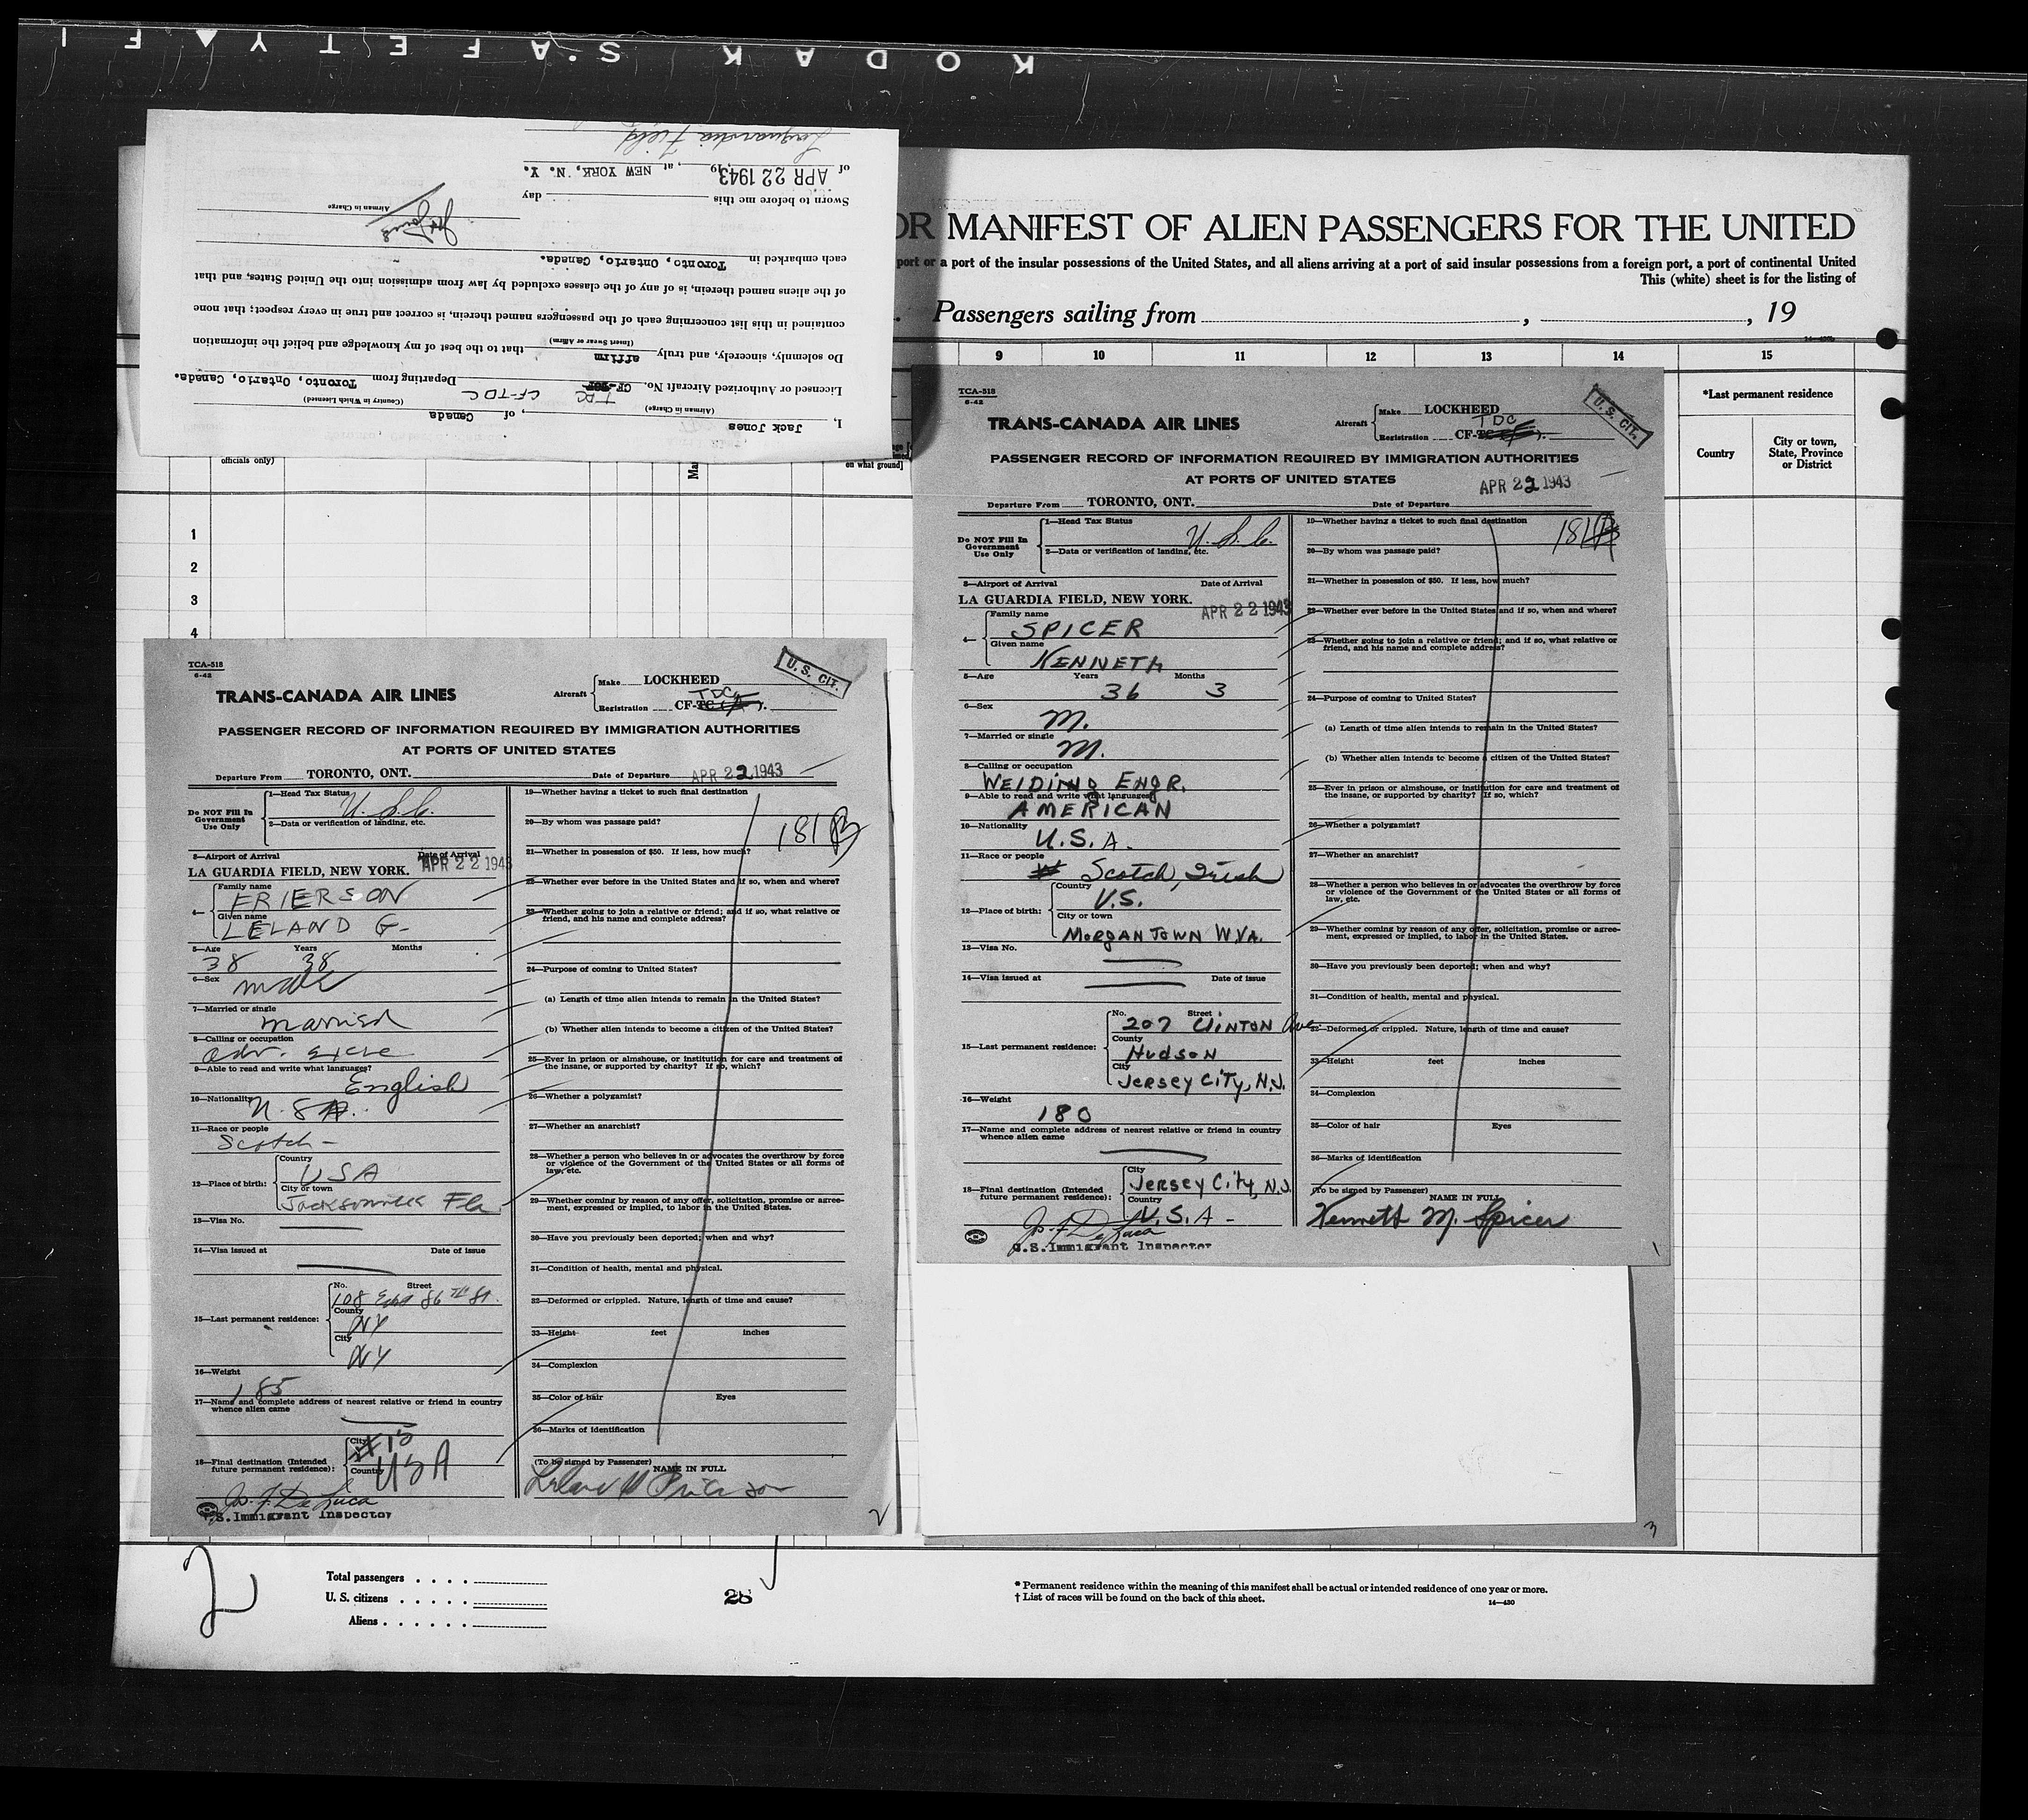 KODAK SAFETY FI
Laguardia Field
of APR 22 1943, 19, at NEW YORK, N. Y.
Sworn to before me this day
Airman in Charge
each embarked in Toronto, Ontario, Canada.
of the aliens named therein, is of any of the classes excluded by law from admission into the United States, and that
contained in this list concerning each of the passengers named therein, is correct and true in every respect; that none
(Insert Swear or Affirm)
Do solemnly, sincerely, and truly affirm that to the best of my knowledge and belief the information
Licensed or Authorized Aircraft No. CF- TDC CF-TDC Departing from Toronto, Ontario, Canada.
(Airman in Charge) (Country in Which Licensed)
I, Jack Jones, of Canada
OR MANIFEST OF ALIEN PASSENGERS FOR THE UNITED
port or a port of the insular possessions of the United States, and all aliens arriving at a port of said insular possessions from a foreign port, a port of continental United
This (white) sheet is for the listing of
Passengers sailing from , , 19
9 10 11 12 13 14 15
*Last permanent residence
Country
City or town, State, Province or District
officials only)
on what ground]
1
2
3
4
TCA-518
6-42
TRANS-CANADA AIR LINES
Aircraft Make LOCKHEED
TDC
Registration CF-TC
U. S. CIT.
PASSENGER RECORD OF INFORMATION REQUIRED BY IMMIGRATION AUTHORITIES
AT PORTS OF UNITED STATES
Departure From TORONTO, ONT. Date of Departure APR 22 1943
Do NOT Fill In Government Use Only
1—Head Tax Status
U.S.C.
2—Data or verification of landing, etc.
3—Airport of Arrival Date of Arrival
LA GUARDIA FIELD, NEW YORK. APR 22 1943
4— Family name
FRIERSON
Given name
LELAND G-
5—Age Years Months
38 38
6—Sex
male
7—Married or single
married
8—Calling or occupation
adv.
9—Able to read and write what languages?
English
10—Nationality
U.S.A.
11—Race or people
Scotch-
12—Place of birth: Country
USA
City or town
Jacksonville Fla.
13—Visa No.
14—Visa issued at Date of issue
15—Last permanent residence: No. Street
108 East 86th St.
County
NY
City
NY
16—Weight
185
17—Name and complete address of nearest relative or friend in country
whence alien came
18—Final destination (Intended
future permanent residence): City
Country
USA
Jos. F. DeLuca
U.S.Immigrant Inspector
19—Whether having a ticket to such final destination
181B
20—By whom was passage paid?
21—Whether in possession of $50. If less, how much?
22—Whether ever before in the United States and if so, when and where?
23—Whether going to join a relative or friend; and if so, what relative or
friend, and his name and complete address?
24—Purpose of coming to United States?
(a) Length of time alien intends to remain in the United States?
(b) Whether alien intends to become a citizen of the United States?
25—Ever in prison or almshouse, or institution for care and treatment of
the insane, or supported by charity? If so, which?
26—Whether a polygamist?
27—Whether an anarchist?
28—Whether a person who believes in or advocates the overthrow by force
or violence of the Government of the United States or all forms of
law, etc.
29—Whether coming by reason of any offer, solicitation, promise or agree-
ment, expressed or implied, to labor in the United States.
30—Have you previously been deported; when and why?
31—Condition of health, mental and physical.
32—Deformed or crippled. Nature, length of time and cause?
33—Height feet inches
34—Complexion
35—Color of hair Eyes
36—Marks of identification
(To be signed by Passenger)
NAME IN FULL
2
TCA-518
6-42
TRANS-CANADA AIR LINES
Aircraft Make LOCKHEED
TDC
Registration CF-TC
U. S. CIT.
PASSENGER RECORD OF INFORMATION REQUIRED BY IMMIGRATION AUTHORITIES
AT PORTS OF UNITED STATES
APR 22 1943
Departure From TORONTO, ONT. Date of Departure
Do NOT Fill In Government Use Only
1—Head Tax Status
U.S.C.
2—Data or verification of landing, etc.
3—Airport of Arrival Date of Arrival
LA GUARDIA FIELD, NEW YORK. APR 22 1943
4— Family name
SPICER
Given name
KENNETH
5—Age Years Months
36 3
6—Sex
M.
7—Married or single
M.
8—Calling or occupation
WELDING ENGR.
9—Able to read and write what languages?
AMERICAN
10—Nationality
U.S.A.
11—Race or people
Scotch, Irish
12—Place of birth: Country
U.S.
City or town
MORGANTOWN W.VA.
13—Visa No.
14—Visa issued at Date of issue
15—Last permanent residence: No. Street
207 CLINTON Ave
County
HUDSON
City
JERSEY CITY, N.J.
16—Weight
180
17—Name and complete address of nearest relative or friend in country
whence alien came
18—Final destination (Intended
future permanent residence): City
JERSEY CITY, N.J.
Country
U.S.A-
Jos. F. DeLuca
U.S.Immigrant Inspector
19—Whether having a ticket to such final destination
181B
20—By whom was passage paid?
21—Whether in possession of $50. If less, how much?
22—Whether ever before in the United States and if so, when and where?
23—Whether going to join a relative or friend; and if so, what relative or
friend, and his name and complete address?
24—Purpose of coming to United States?
(a) Length of time alien intends to remain in the United States?
(b) Whether alien intends to become a citizen of the United States?
25—Ever in prison or almshouse, or institution for care and treatment of
the insane, or supported by charity? If so, which?
26—Whether a polygamist?
27—Whether an anarchist?
28—Whether a person who believes in or advocates the overthrow by force
or violence of the Government of the United States or all forms of
law, etc.
29—Whether coming by reason of any offer, solicitation, promise or agree-
ment, expressed or implied, to labor in the United States.
30—Have you previously been deported; when and why?
31—Condition of health, mental and physical.
32—Deformed or crippled. Nature, length of time and cause?
33—Height feet inches
34—Complexion
35—Color of hair Eyes
36—Marks of identification
(To be signed by Passenger)
NAME IN FULL
Kenneth M. Spicer
1
3
2
Total passengers
U. S. citizens
Aliens
28
* Permanent residence within the meaning of this manifest shall be actual or intended residence of one year or more.
† List of races will be found on the back of this sheet.
14—430